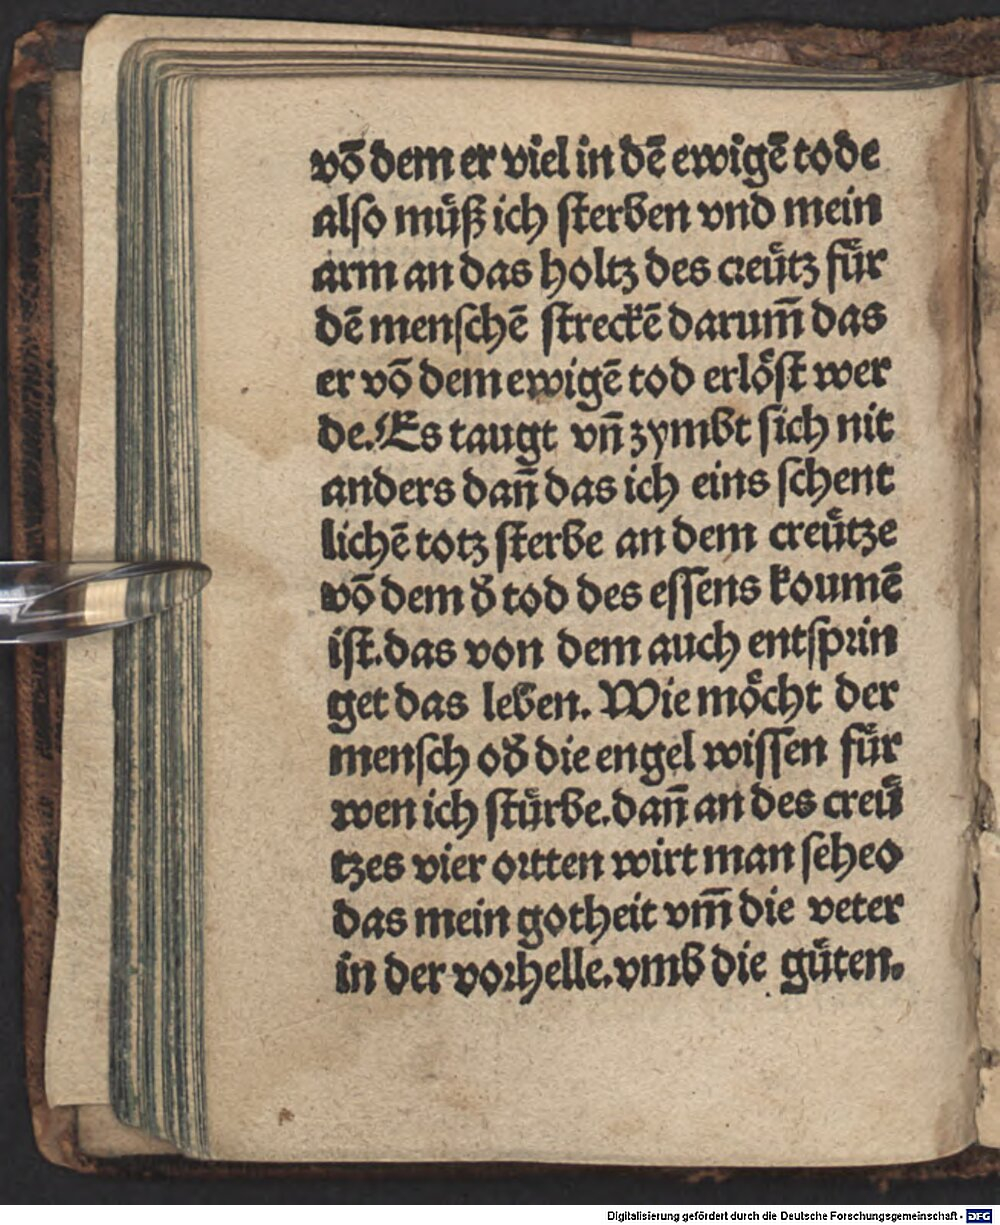 võ dem er viel in dē ewigē tode
alſo muͤß ich ſterben vnd mein
arm an das holtz des creuͤtz fuͤr
dē menſchē ſtreckē darum̄ das
er võ dem ewigē tod erloͤſt wer
de. Es taugt vn̄ zymbt ſich nit
anders dan̄ das ich eins ſchent
lichē totz ſterbe an dem creuͤtze
võ dem d̕ tod des eſſens koumē
iſt. das von dem auch entſprin
get das leben. Wie moͤcht der
menſch od̕ die engel wiſſen fuͤr
wen ich ſtuͤrbe. dan̄ an des creuͤ
tzes vier ortten wirt man ſeheo
das mein gotheit vm̄ die veter
in der vorhelle. vmb die guͤten.
Digitalisierung gefördert durch die Deutsche Forschungsgemeinschaft - DFG